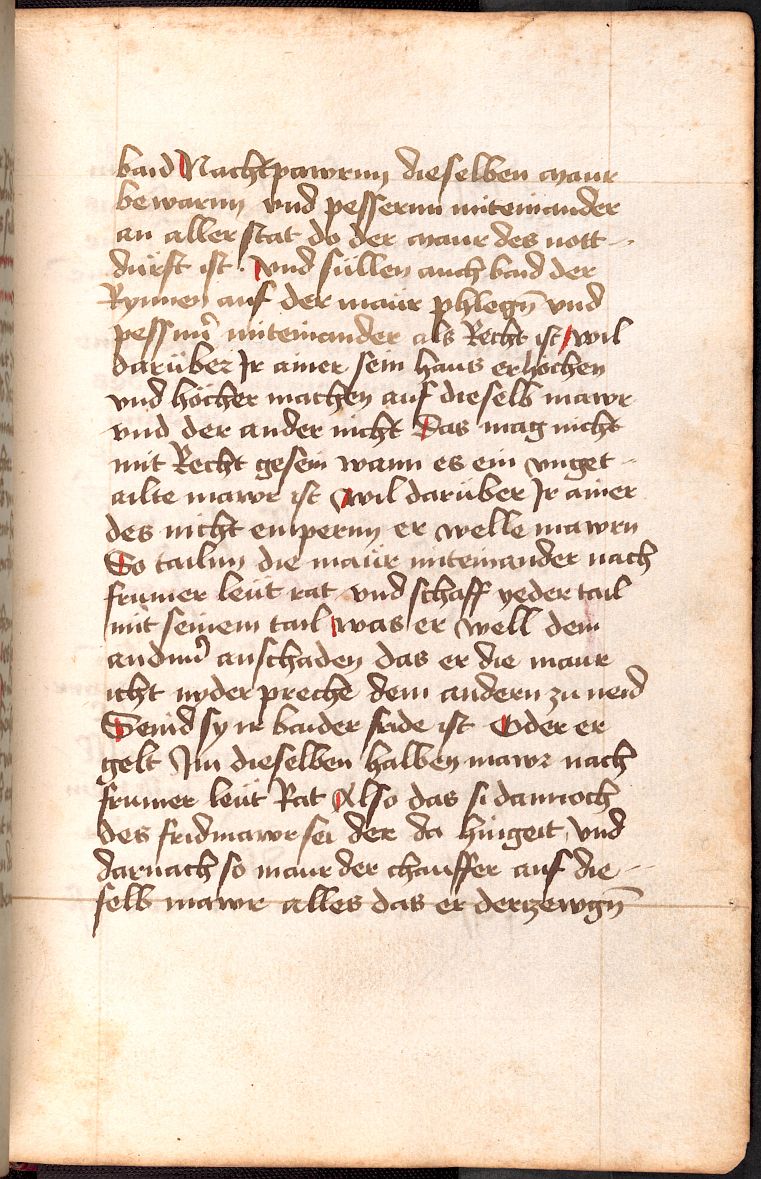 baid Nachtpawrnn dieselben maur
bewarnn vnd pessernn miteinander
an aller stat do der maur des nott-
dürft ist. vnd süllen auch baid der
Rynnen auf der maür phlegn̄ vnd
pessnn̄ miteinander als Recht ist wil
darüber Ir ainer sein haus erhochen
vnd höcher machen auf dieselb mawr
vnd der ander nicht Das mag nicht
mit Recht gesein wann es ein vnget-
ailte mawr ist wil darüber Ir ainer
des nicht enpernn er welle mawrn
So tailnn die maür miteinander nach
frumer leüt rat vnd schaff yeder tail
mit seinem tail was er well dem
andnn̄ anschaden das er die maur
icht nyder preche dem andern zu neid
Seind sy ir baider fride ist Oder er
gelt Im dieselben halben mawr nach
frumer leüt Rat Also das si dannoch
des fridmawr sei der da hingeit vnd
darnach so maur der chauffer auf die-
selb mawr alles das er derzewgn̄